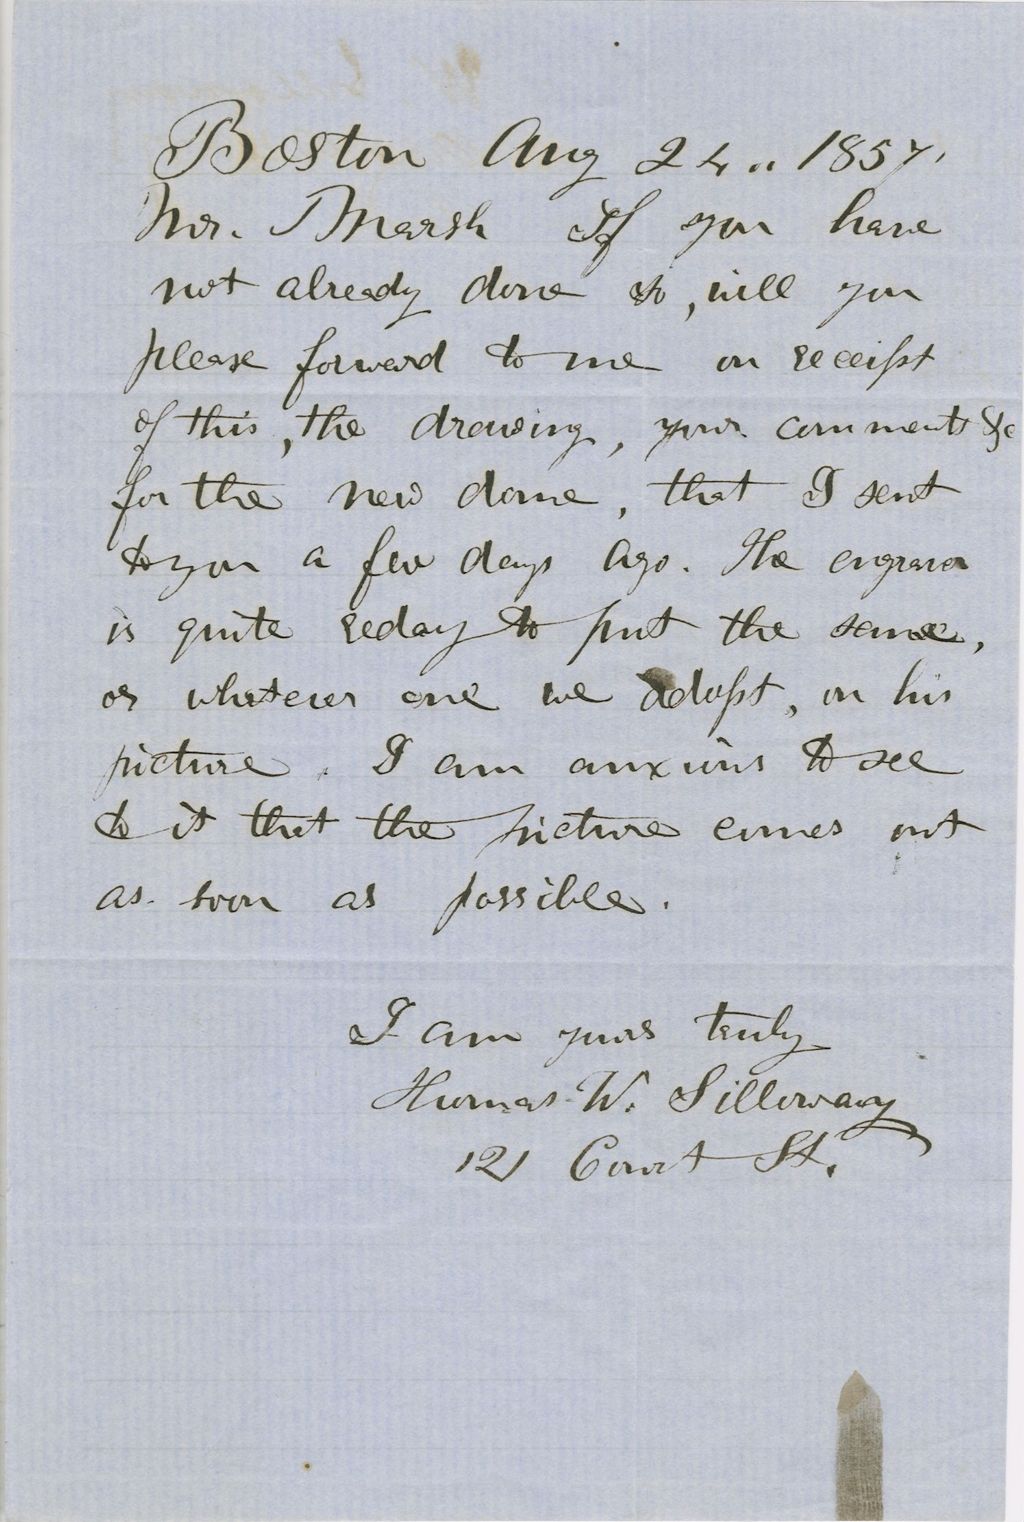 Boston Aug 24.. 1857.
Mr. Marsh If you have
not already done so, will you
please forward to me on receipt
of this, the drawing, your comments &c
for the new dome, that I sent
to you a few days ago. The engraver
is quite reday to put the same,
or whatever one we adopt, on his
picture. I am anxious to see
to it that the picture comes out
as soon as possible.
I am yours truly
Thomas W. Silloway
121 Court St.